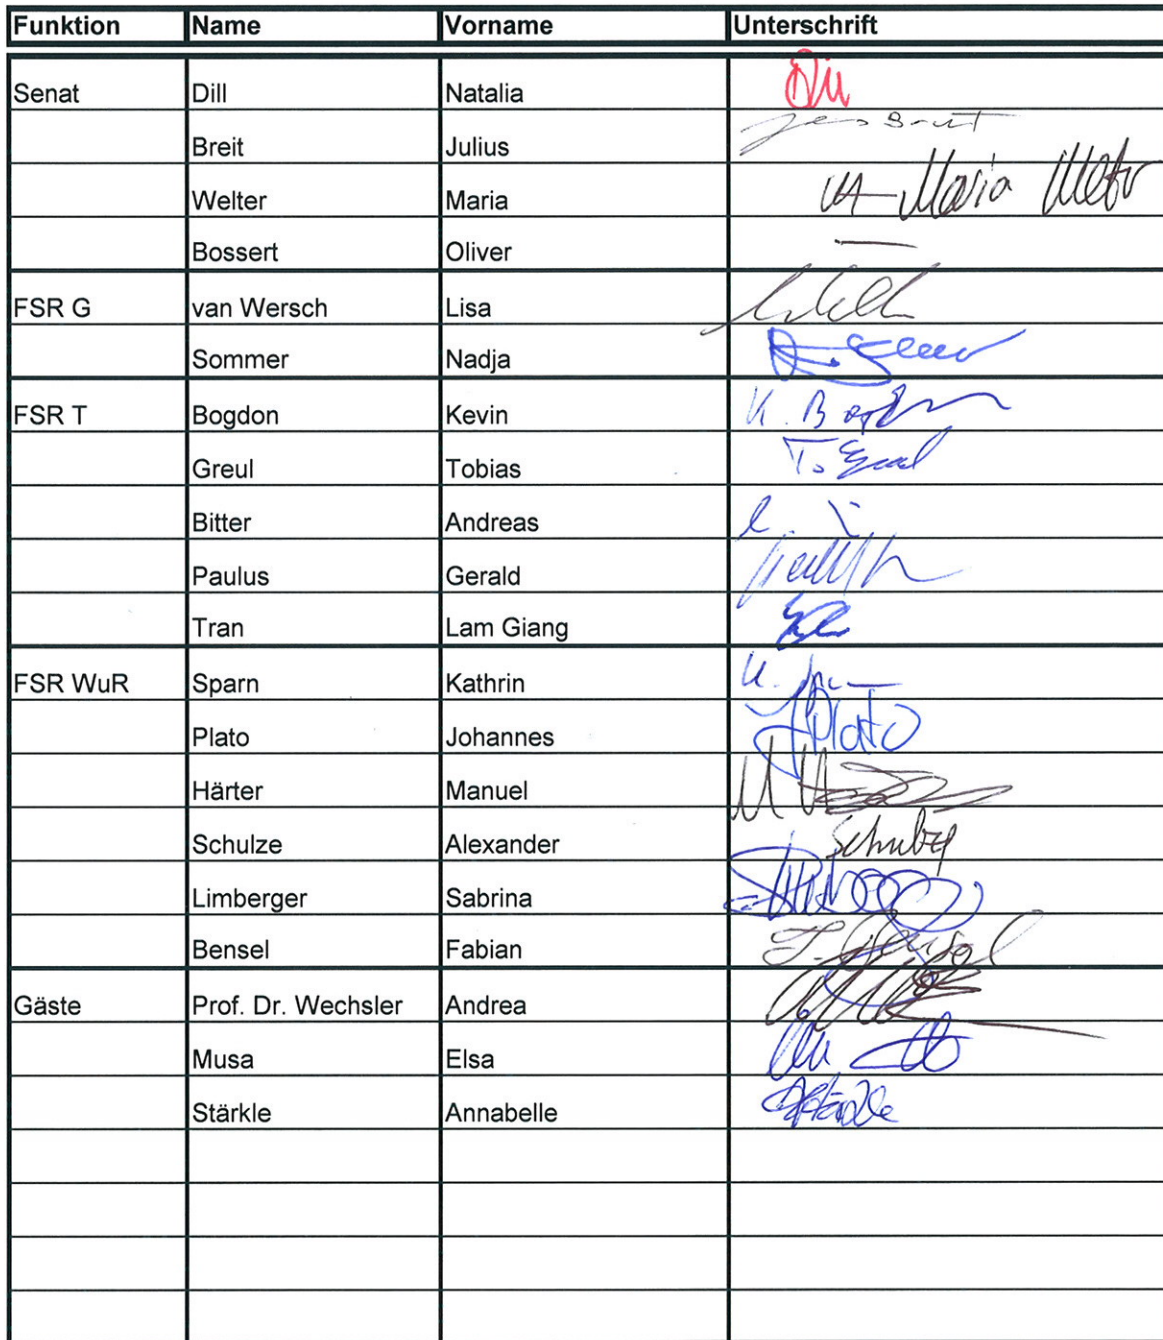 Funktion Name Vorname Unterschrift
Senat Dill Natalia Dill
Breit Julius
Welter Maria Maria Welter
Bossert Oliver —
FSR G van Wersch Lisa
Sommer Nadja
FSR T Bogdon Kevin K. Bogdon
Greul Tobias T. Greul
Bitter Andreas
Paulus Gerald
Tran Lam Giang
FSR WuR Sparn Kathrin
Plato Johannes Plato
Härter Manuel
Schulze Alexander Schulze
Limberger Sabrina
Bensel Fabian F. Bensel
Gäste Prof. Dr. Wechsler Andrea
Musa Elsa
Stärkle Annabelle AStärkle